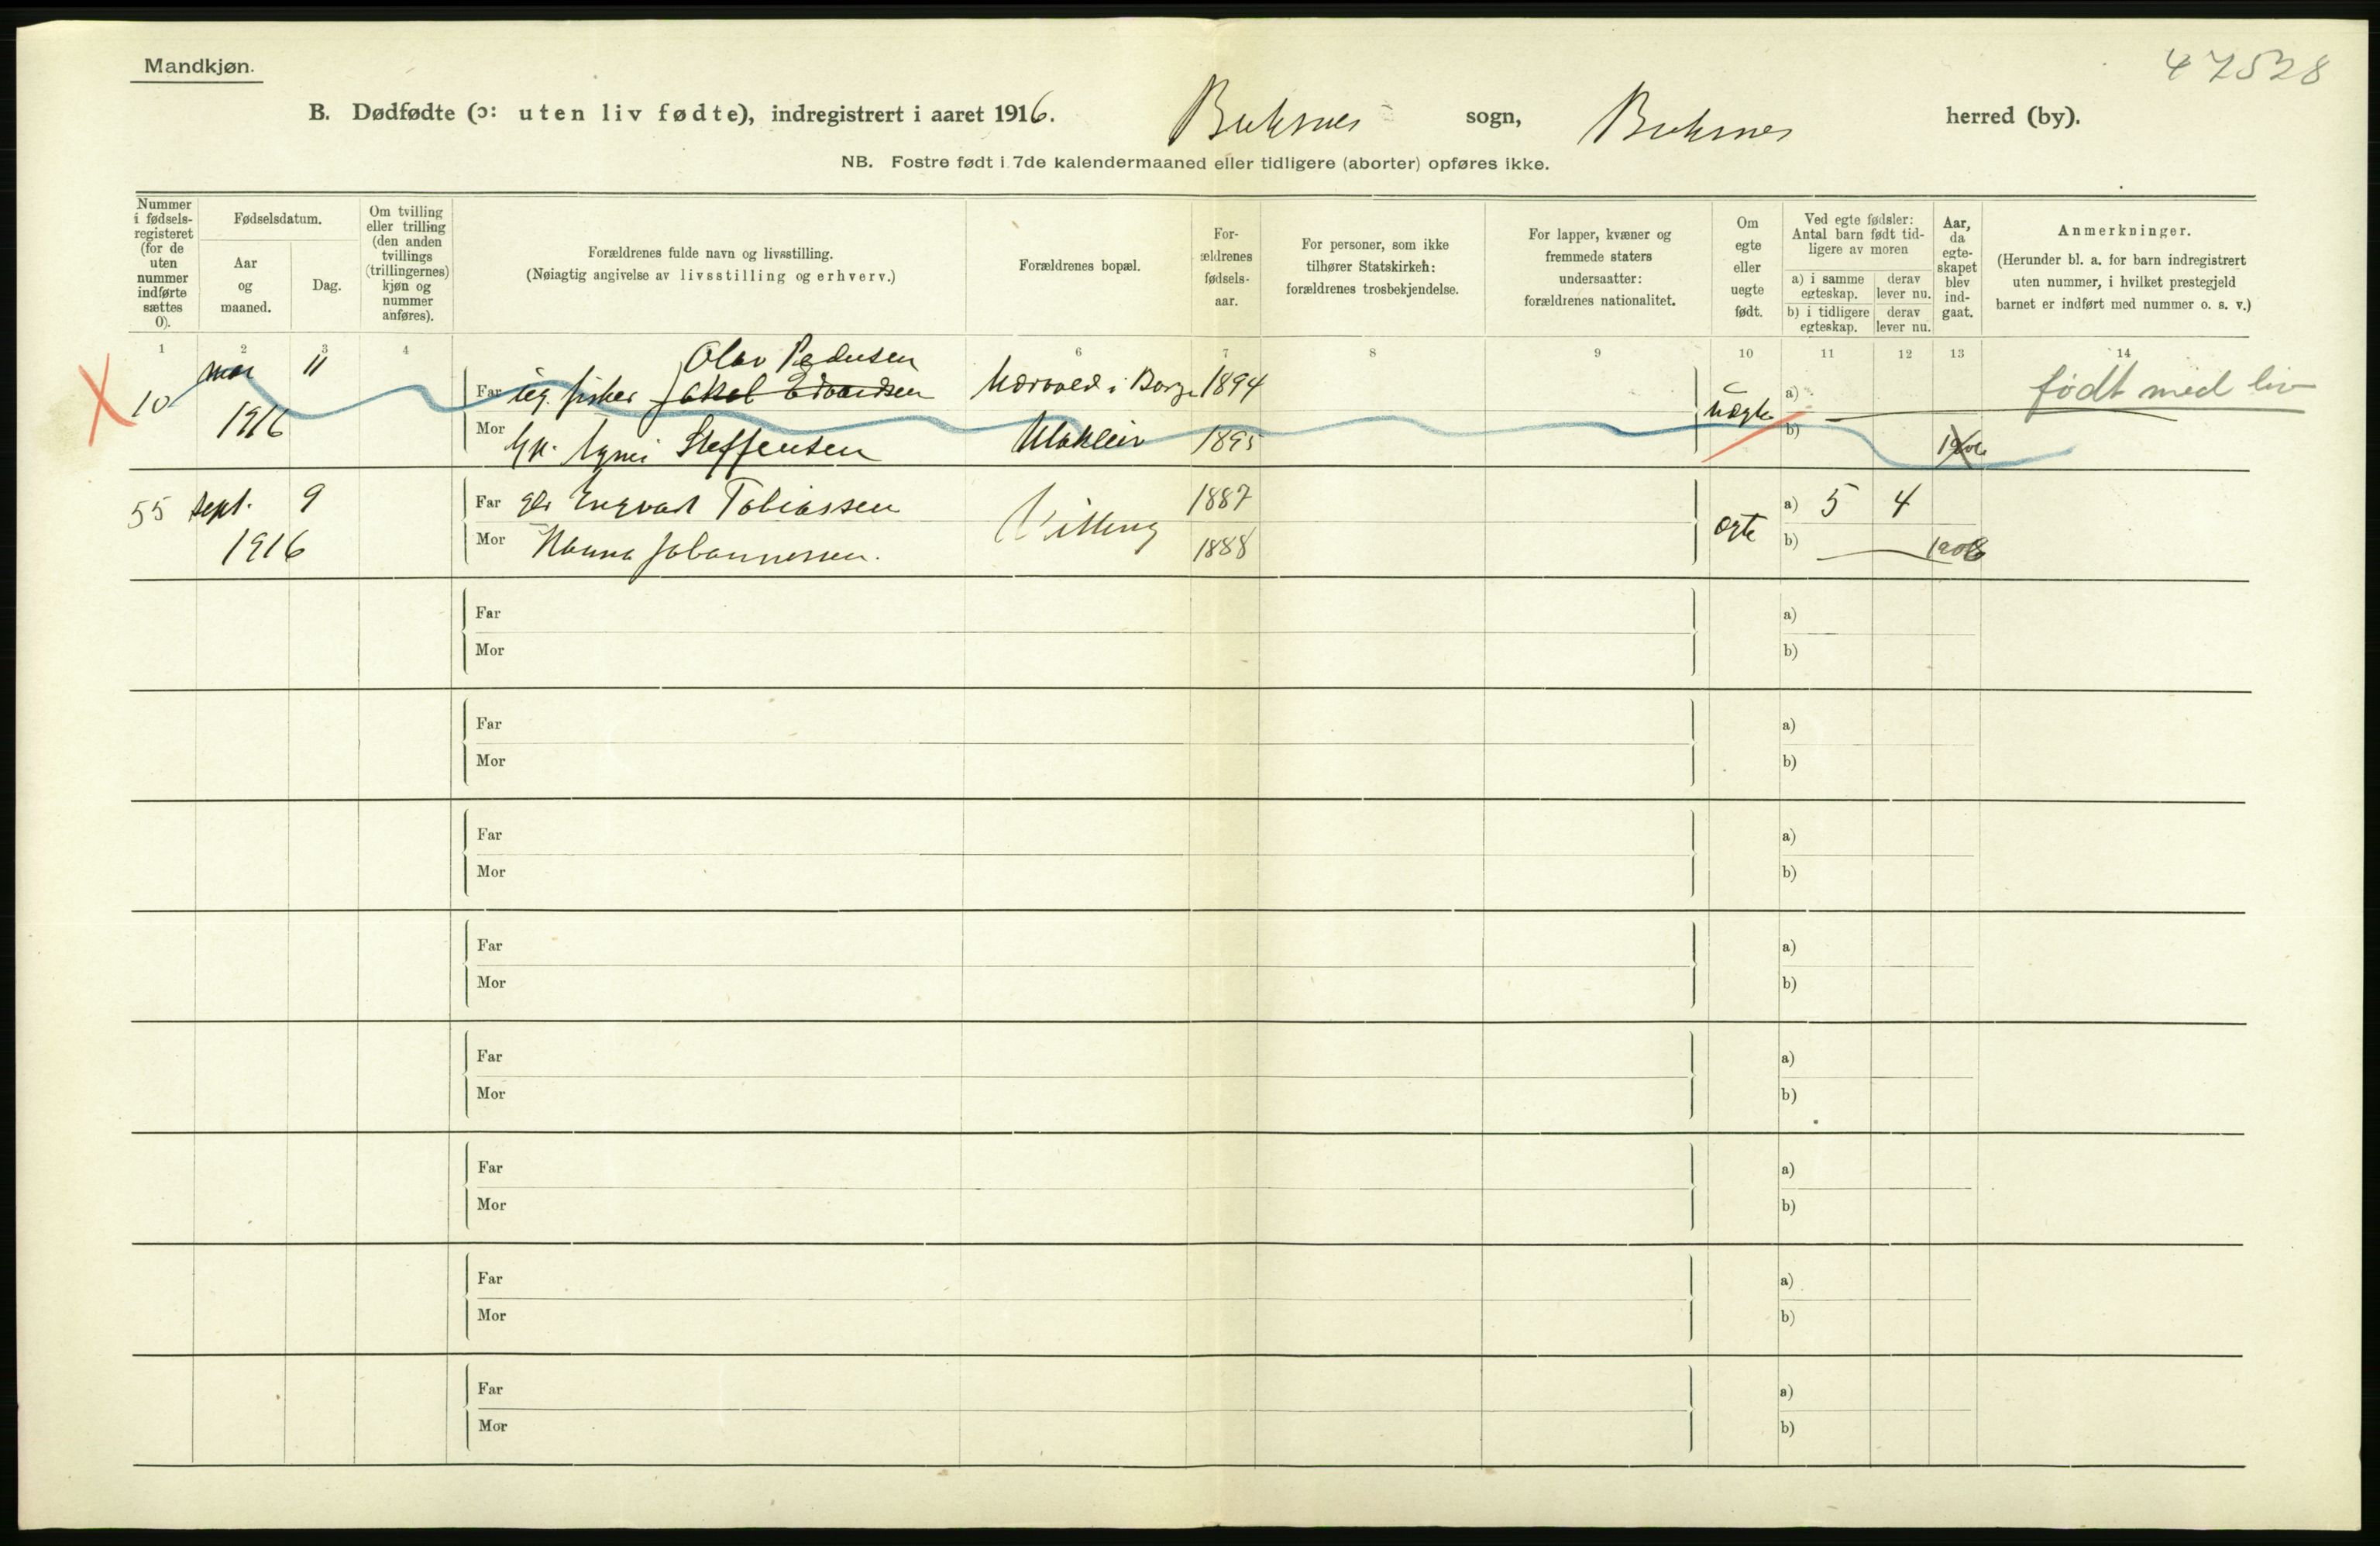 Mandkjøn.
47528
B. Dødfødte (ɔ: uten liv fødte), indregistrert i aaret 1916. Buksnes sogn, Buksnes herred (by).
NB. Fostre født i 7de kalendermaaned eller tidligere (aborter) opføres ikke.
Nummer i fødsels-registeret (for de uten nummer indførte sættes 0).
Fødselsdatum.
Aar og maaned.
Dag.
Om tvilling eller trilling (den anden tvillings (trillingernes) kjøn og nummer anføres).
Forældrenes fulde navn og livsstilling.
(Nøiagtig angivelse av livsstilling og erhverv.)
Forældrenes bopæl.
For-ældrenes fødsels-aar.
For personer, som ikke tilhører Statskirken: forældrenes trosbekjendelse.
For lapper, kvæner og fremmede staters undersaatter: forældrenes nationalitet.
Om egte eller uegte født.
Ved egte fødsler: Antal barn født tid-ligere av moren
a) i samme egteskap. derav lever nu.
b) i tidligere egteskap. derav lever nu.
Aar, da egte-skapet blev ind-gaat.
Anmerkninger.
(Herunder bl. a. for barn indregistrert uten nummer, i hvilket prestegjeld barnet er indført med nummer o. s. v.)
1 2 3 4 6 7 8 9 10 11 12 13 14
Olav Pedersen
10 mar 11 Far ug. fisker Jakob Edvardsen i Borge 1894 uegte a) født med liv
1916 Mor Agnes Steffensen 1895 b)
55 sept. 9 Far Ingvart Tobiassen 1887 egte a) 5 4
1916 Mor Hanna Johannessen. 1888 b) 1908
Far a)
Mor b)
Far a)
Mor b)
Far a)
Mor b)
Far a)
Mor b)
Far a)
Mor b)
Far a)
Mor b)
Far a)
Mor b)
Far a)
Mor b)